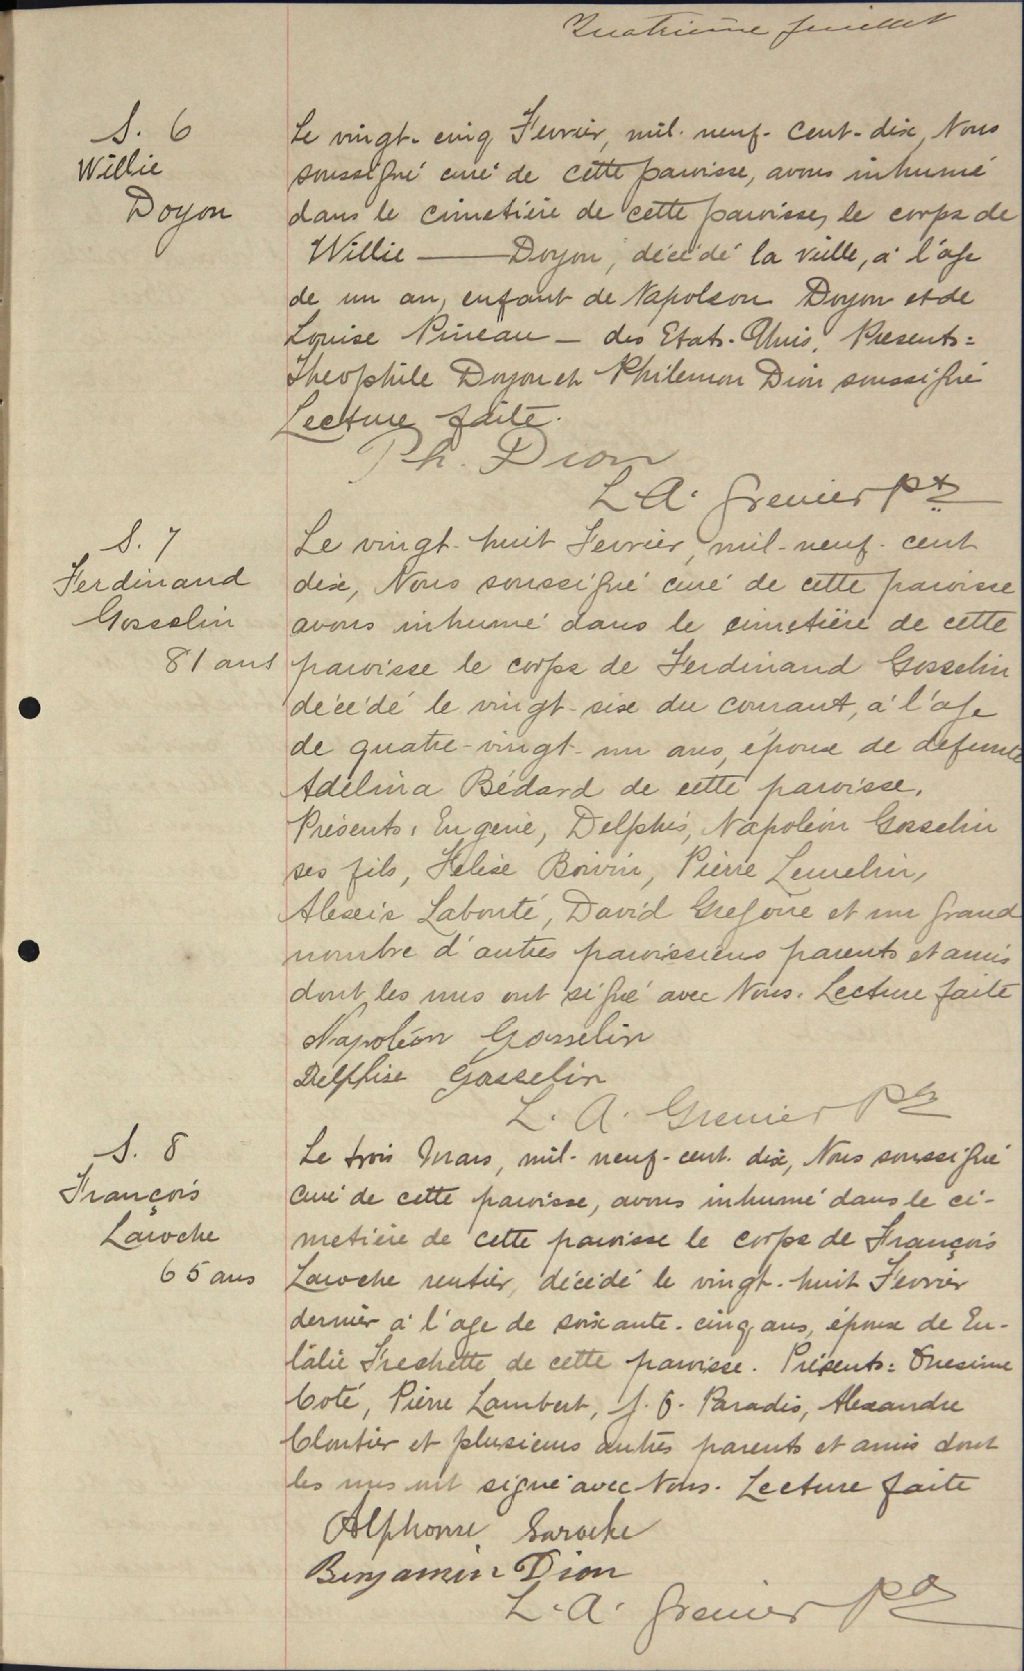 Quatrième feuillet
S. 6
Willie
Doyon
Le vingt-cinq Fevrier, mil-neuf-cent-dix, Nous
soussigné curé de cette paroisse, avons inhumé
dans le cimetière de cette paroisse, le corps de
Willie — Doyon, décédé la veille, à l'age
de un an, enfant de Napoleon Doyon et de
Louise Pineau — des Etats-Unis. Presents:
Theophile Doyon et Philemon Dion soussigné
Lecture faite.
Ph. Dion
L. A. Grenier Ptre
S. 7
Ferdinand
Gosselin
81 ans
Le vingt-huit Fevrier, mil-neuf-cent
dix, Nous soussigné curé de cette paroisse
avons inhumé dans le cimetière de cette
paroisse le corps de Ferdinand Gosselin
décédé le vingt-six du courant, à l'age
de quatre-vingt-un ans, époux de defunte
Adelina Bédard de cette paroisse.
Présents: Eugenie, Delphis, Napoléon Gosselin
ses fils, Felixe Boivin, Pierre Lemelin,
Alexis Labonté, David Gregoire et un grand
nombre d'autres paroissiens parents et amis
dont les uns ont signé avec Nous. Lecture faite
Napoléon Gosselin
Delphise Gosselin
L. A. Grenier Ptre
S. 8
François
Laroche
65 ans
Le trois Mars, mil-neuf-cent-dix, Nous soussigné
curé de cette paroisse, avons inhumé dans le ci-
metière de cette paroisse le corps de François
Laroche rentier, décédé le vingt-huit Fevrier
dernier à l'age de soixante-cinq ans, époux de Eu-
lalie Frechette de cette paroisse. Présents: Onesime
Coté, Pierre Lambert, J. O. Paradis, Alexandre
Cloutier et plusieurs autres parents et amis dont
les uns ont signé avec Nous. Lecture faite
Alphonse Laroche
Benjamin Dion
L. A. Grenier Ptre